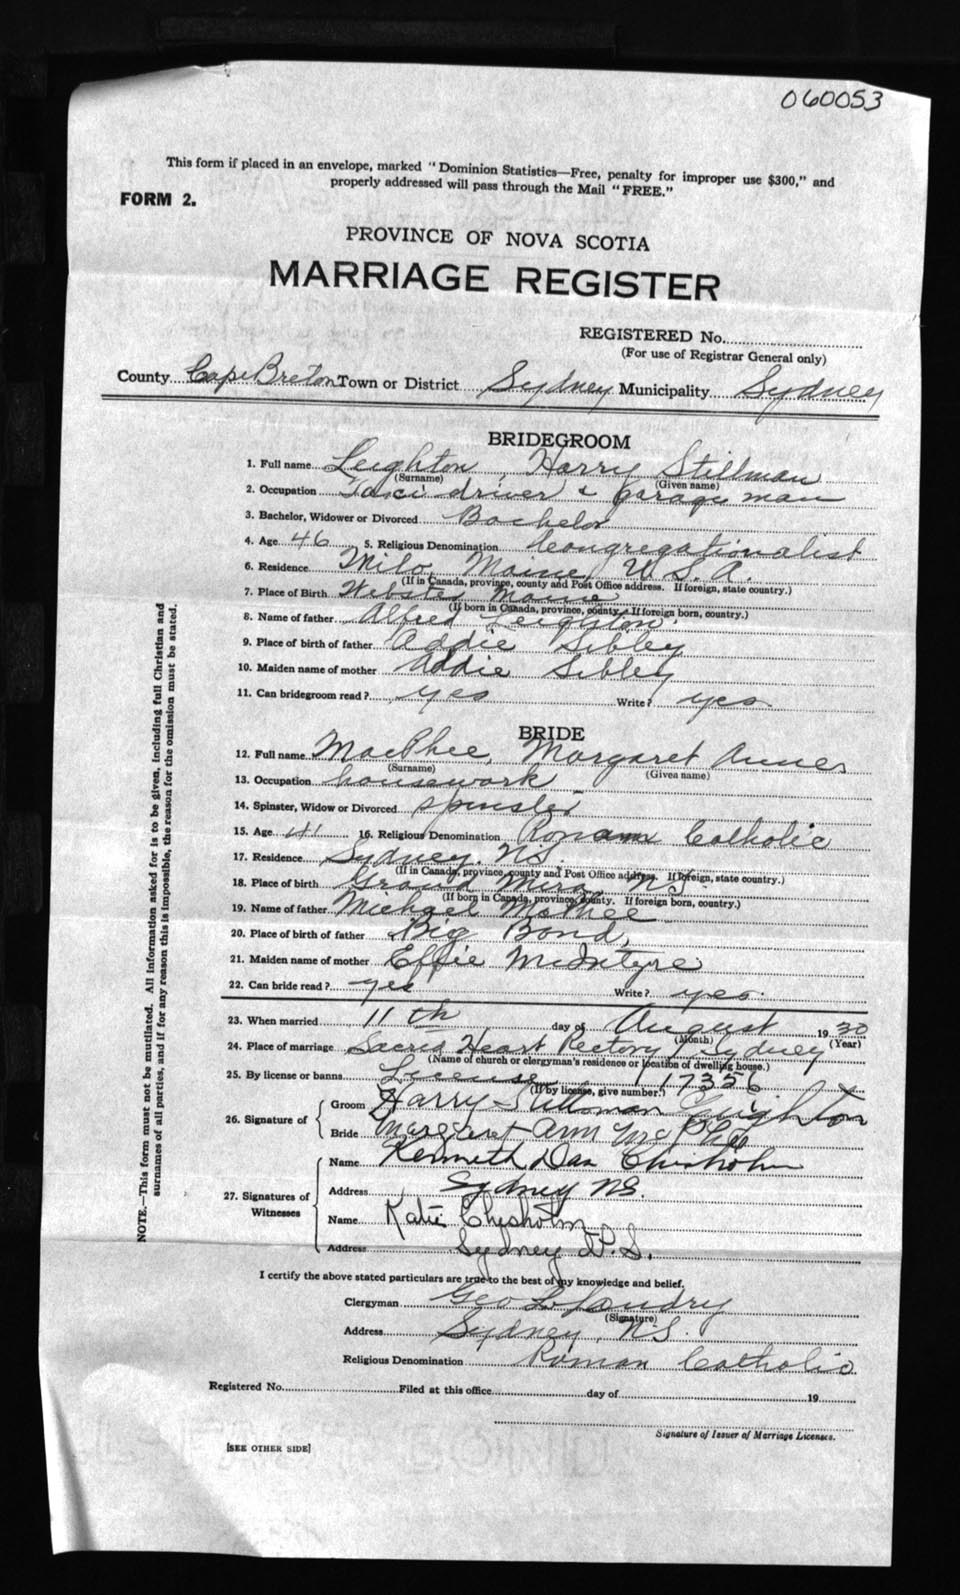 060053
This form if placed in an envelope, marked "Dominion Statistics—Free, penalty for improper use $300," and
properly addressed will pass through the Mail "FREE."
FORM 2.
PROVINCE OF NOVA SCOTIA
MARRIAGE REGISTER
REGISTERED No.
(For use of Registrar General only)
County Cape Breton Town or District Sydney Municipality Sydney
BRIDEGROOM
1. Full name Leighton, Harry Stillman
(Surname) (Given name)
2. Occupation Taxi driver & garage man
3. Bachelor, Widower or Divorced Bachelor
4. Age 46 5. Religious Denomination Congregationalist
6. Residence Milo, Maine, U.S.A.
(If in Canada, province, county and Post Office address. If foreign, state country.)
7. Place of Birth Webster Maine
(If born in Canada, province, county. If foreign born, country.)
8. Name of father Alfred Leighton
9. Place of birth of father Addie Sibley
10. Maiden name of mother Addie Sibley
11. Can bridegroom read? yes Write? yes
BRIDE
12. Full name MacPhee, Margaret Annes
(Surname) (Given name)
13. Occupation housework
14. Spinster, Widow or Divorced spinster
15. Age 41 16. Religious Denomination Roman Catholic
17. Residence Sydney, N.S.
(If in Canada, province, county and Post Office address. If foreign, state country.)
18. Place of birth Grand Mira N.S.
(If born in Canada, province, county. If foreign born, country.)
19. Name of father Michael McPhee
20. Place of birth of father Big Pond,
21. Maiden name of mother Effie McIntyre
22. Can bride read? yes Write? yes
23. When married 11th day of August 1930
(Month) (Year)
24. Place of marriage Sacred Heart Rectory, Sydney
(Name of church or clergyman's residence or location of dwelling house.)
25. By license or banns License 117356
(If by license, give number.)
26. Signature of Groom Harry Stillman Leighton
Bride Margaret Ann McPhee
27. Signatures of Witnesses Name Kenneth Dan Chisholm
Address Sydney NS.
Name Katie Chisholm
Address Sydney N.S.
I certify the above stated particulars are true to the best of my knowledge and belief.
Clergyman Geo L. Landry
(Signature)
Address Sydney, N.S.
Religious Denomination Roman Catholic
Registered No. Filed at this office day of 19
Signature of Issuer of Marriage Licenses.
[SEE OTHER SIDE]
NOTE.—This form must not be mutilated. All information asked for is to be given, including full Christian and
surnames of all parties, and if for any reason this is impossible, the reason for the omission must be stated.